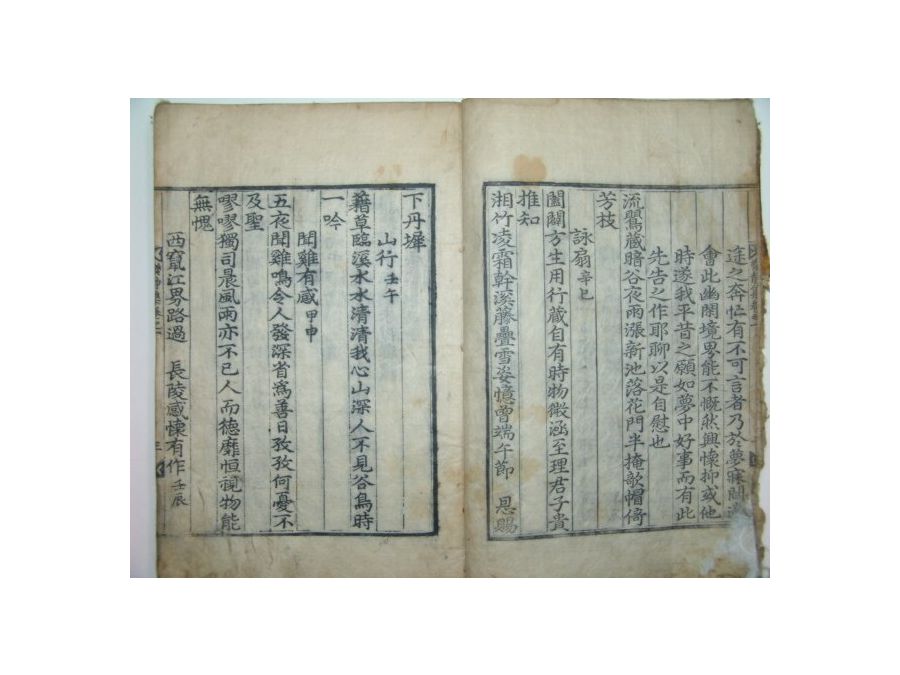 途之奔忙有不可言者乃於夢寐間
會此幽閑境界能不慨然興懷抑或他
時遂我平昔之願如夢中好事而有此
先告之作耶聊以是自慰也
流鶯藏暗谷夜雨漲新池落花門半掩歌帽倚
芳枝
詠扇 辛巳
闔闢方生用行藏自有時物微涵至理君子貴
推知
湘竹凌霜幹溪藤疊雪姿憶曾端午節 恩賜
下丹墀
山行 壬午
藉草臨溪水水清清我心山深人不見谷鳥時
一吟
聞雞有感 甲申
五夜聞雞鳴令人發深省爲善日孜孜何憂不
及聖
嘐嘐獨司晨風雨亦不已人而德靡恒視物能
無愧
西竄江界路過 長陵感懷有作 壬辰
三